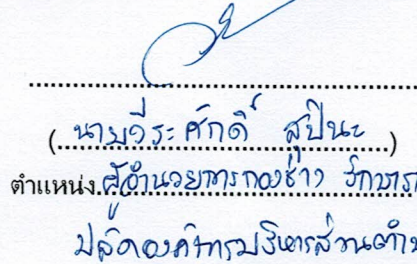 (นายวีระศักดิ์ สุปินะ)
ตำแหน่ง ผู้อำนวยการกองช่าง รักษารา
ปลัดองค์การบริหารส่วนตำบ